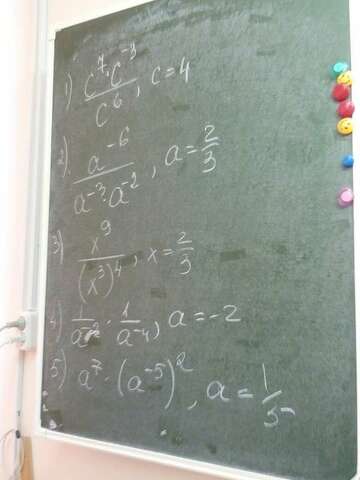 1) \frac{c^7 \cdot c^{-3}}{c^6}, c=4
2) \frac{a^{-6}}{a^{-3} \cdot a^{-2}}, a=\frac{2}{3}
3) \frac{x^9}{(x^3)^4}, x=\frac{2}{3}
4) \frac{1}{a^{-2}} \cdot \frac{1}{a^{-4}}, a=-2
5) a^7 \cdot (a^{-5})^2, a=\frac{1}{5}